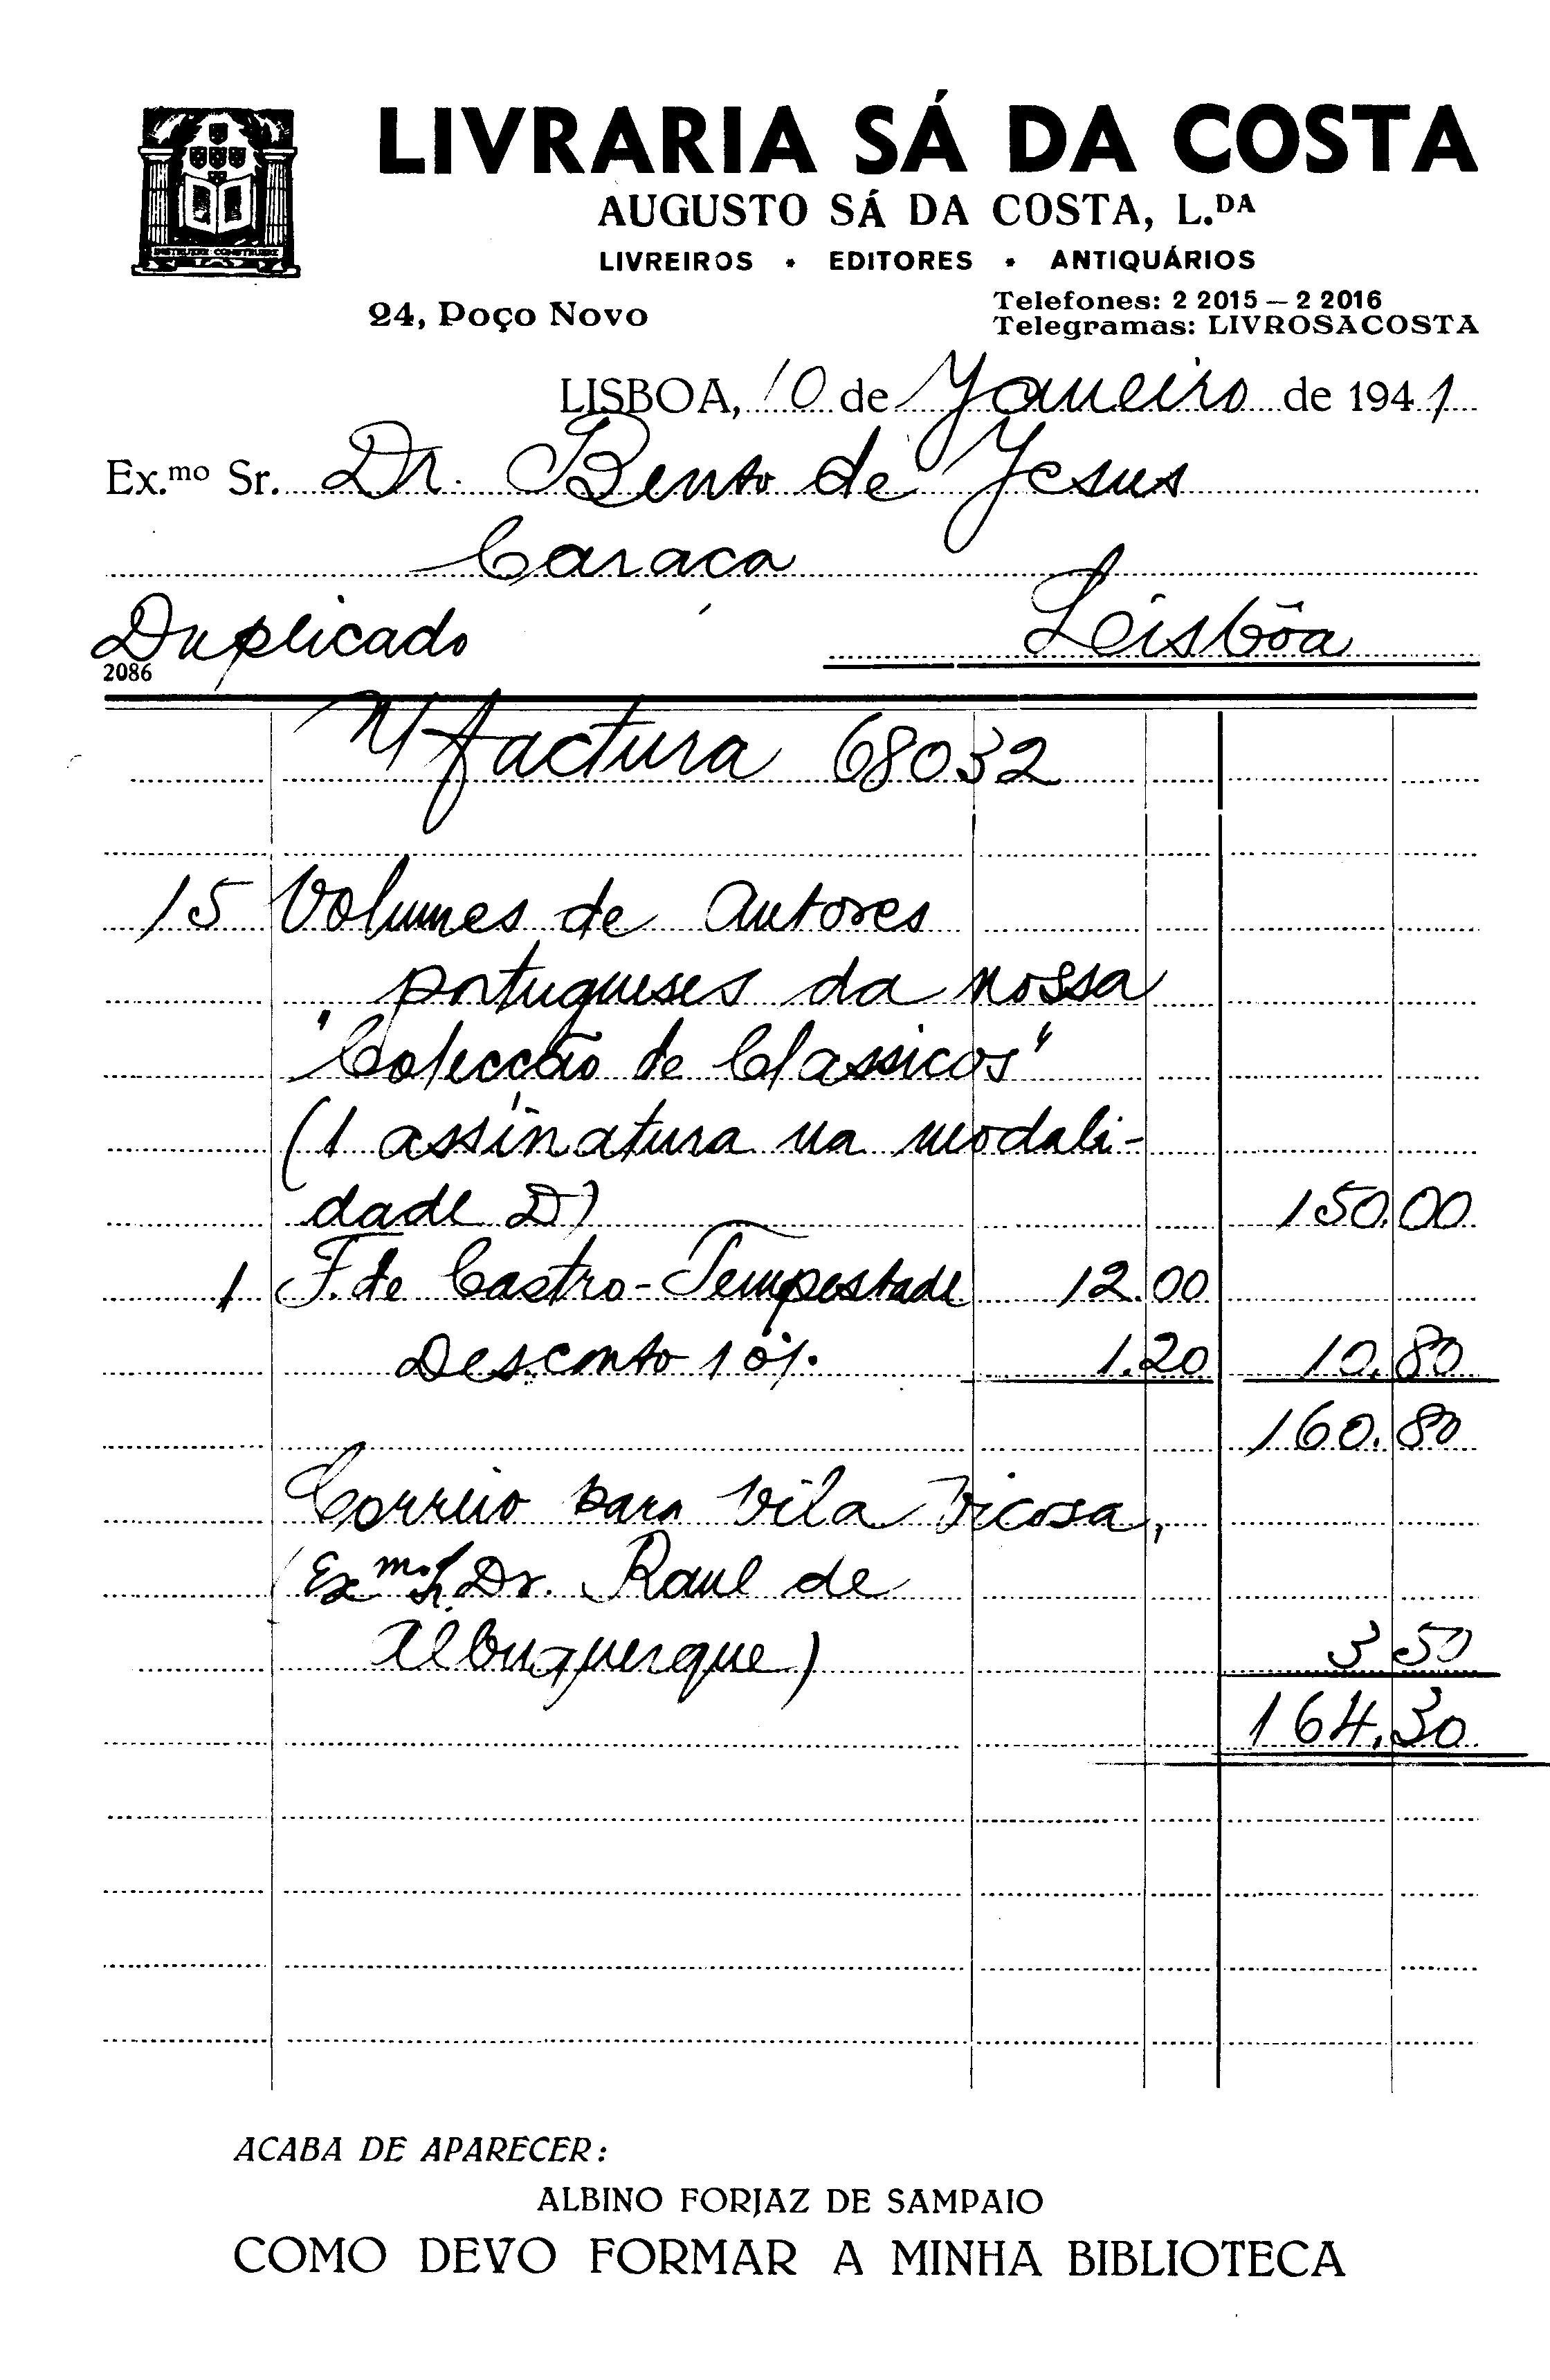 LIVRARIA SÁ DA COSTA
AUGUSTO SÁ DA COSTA, L.DA
LIVREIROS • EDITORES • ANTIQUÁRIOS
24, Poço Novo
Telefones: 2 2015 — 2 2016
Telegramas: LIVROSACOSTA
INSTRUERE CONSTRUERE
LISBOA, 10 de Janeiro de 1941
Ex.mo Sr. Dr. Bento de Jesus
Caraca
Duplicado
Lisbôa
2086
N/ factura 68032
15 Volumes de autores
portugueses da nossa
"Colecção de Classicos"
(1 assinatura na modali-
dade D) 150.00
1 F. de Castro - Tempestade 12.00
Desconto 10% 1.20 10.80
160.80
Correio para Vila Vicosa,
(Exmo Sr. Dr. Raul de
Albuquerque) 3 50
164.30
ACABA DE APARECER:
ALBINO FORJAZ DE SAMPAIO
COMO DEVO FORMAR A MINHA BIBLIOTECA